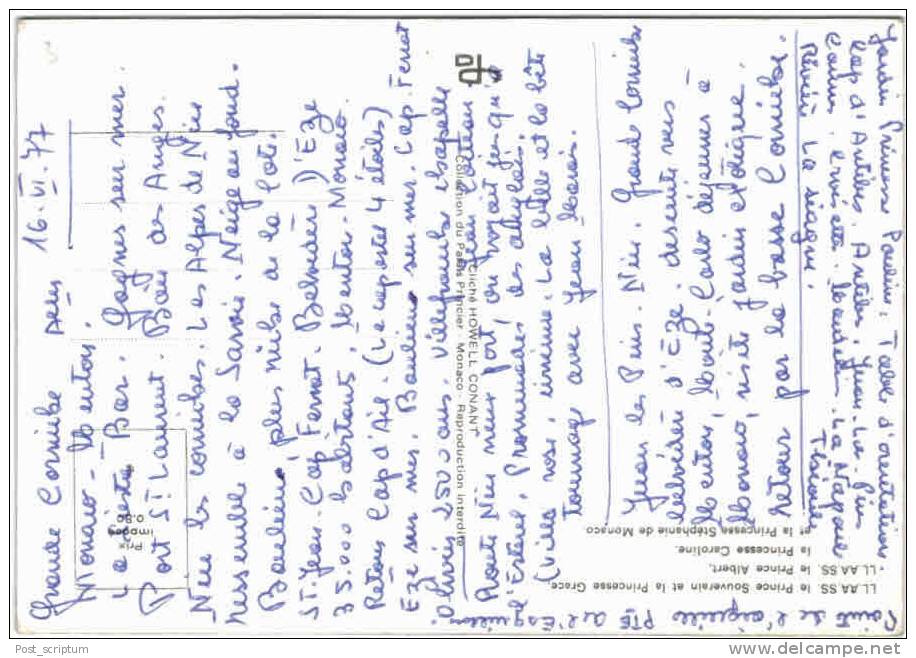 16.VI.77
Grande Corniche
Monaco - Menton.
Bar. Cagnes sur mer.
Port St Laurent. Baie des Anges.
Nice les corniches. Les Alpes de Nice
ressemble à la Savoie. Neige au fond.
Beaulieu plus riche de la côte.
St Jean - Cap Ferrat. Belvédère d'Eze
35.000 habitants, Menton - Monaco
Retour Cap d'Ail - (Le cap est 4 étoiles)
Eze sur mer. Beaulieu sur mer. Cap Ferrat
2500 ans. Villefranche chapelle
Jean Cocteau
Route Nice vieux port, on voyait jusqu'à
l'Esterel, Promenade des Anglais.
(Villa rose, immense. La belle et la bête
tournage avec Jean Marais.
Juan les Pins. Nice. Grande Corniche
belvédère d'Eze. descente vers
Menton, Monte-Carlo déjeuner à
Monaco, visite jardin exotique.
Retour par la basse Corniche.
Jardin Princesse Pauline: Table d'orientation
Cap d'Antibes. Antibes. Juan-Le-Pins
Cannes. Croisette. Mandelieu. La Napoule
Rivière La Siagne. Théoule
Pointe de l'aiguille Pte de l'Esquillon
LL.AA.SS. le Prince Souverain et la Princesse Grace.
LL.AA.SS. le Prince Albert,
la Princesse Caroline.
et la Princesse Stéphanie de Monaco
Cliché HOWELL CONANT
Collection du Palais Princier - Monaco - Reproduction interdite
Prix
images
0.80
Post_scriptum
www.delcampe.net